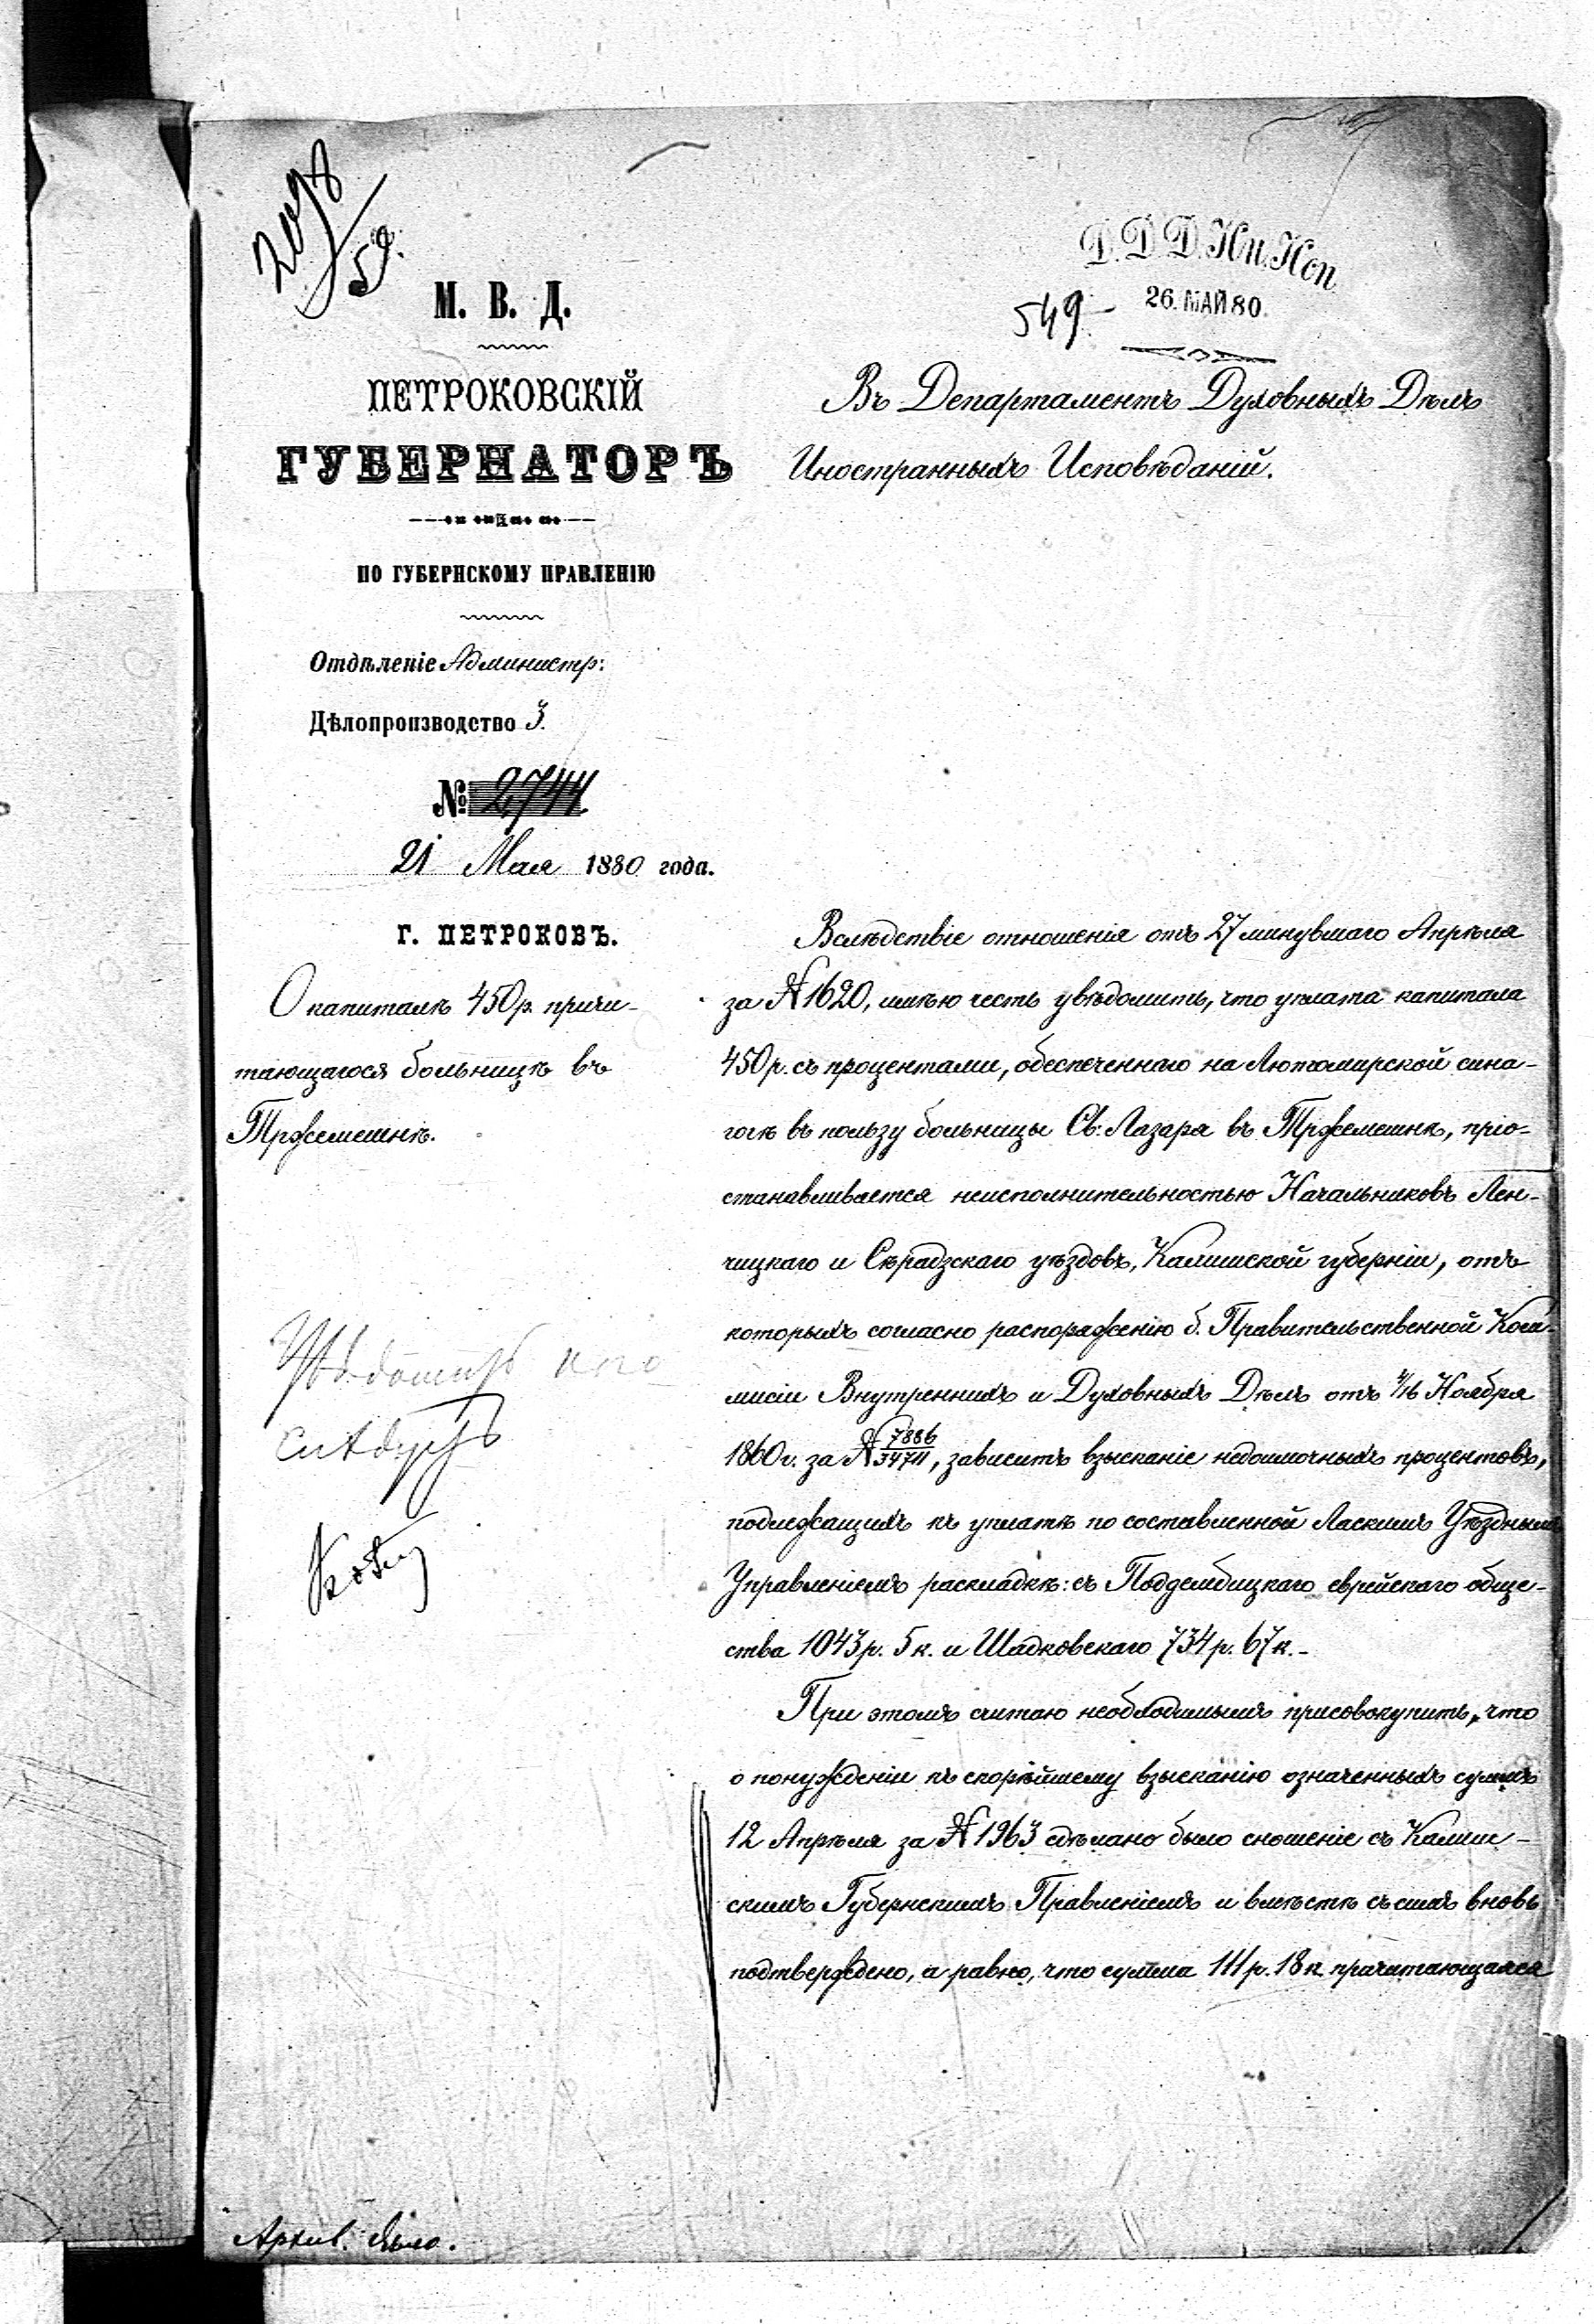 2098/59.
М. В. Д.
ПЕТРОКОВСКІЙ
ГУБЕРНАТОРЪ
ПО ГУБЕРНСКОМУ ПРАВЛЕНІЮ
Отдѣленіе Администр:
Дѣлопроизводство 3.
№ 2744
21 Мая 1880 года.
Г. ПЕТРОКОВЪ.
О капиталѣ 450р. причи-
тающагося больницѣ въ
Тржемешнѣ.
Увѣдомить кого
слѣдуетъ
Архив. дѣло.
Д. Д. Д. Ин. Исп
26. МАЙ 80.
549
Въ Департаментъ Духовныхъ Дѣлъ
Иностранныхъ Исповѣданій.
Вслѣдствіе отношенія отъ 27 минувшаго Апрѣля
за № 1620, имѣю честь увѣдомить, что уплата капитала
450р. съ процентами, обеспеченнаго на Лютомирской сина-
гогѣ въ пользу больницы Св: Лазаря въ Тржемешнѣ, пріо-
станавливается неисполнительностью Начальниковъ Лен-
чицкаго и Сѣрадзскаго уѣздовъ, Калишской губерніи, отъ
которыхъ согласно распоряженію б. Правительственной Ком-
мисіи Внутреннихъ и Духовныхъ Дѣлъ отъ 4/16 Ноября
1860г. за № 7886/34711, зависитъ взысканіе недоимочныхъ процентовъ,
подлежащихъ къ уплатѣ по составленной Ласкимъ Уѣзднымъ
Управленіемъ раскладкѣ: съ Поддембицкаго еврейскаго обще-
ства 1043р. 5к. и Шадковскаго 734р. 67к.-
При этомъ считаю необходимымъ присовокупить, что
о понужденіи къ скорѣйшему взысканію означенныхъ суммъ
12 Апрѣля за № 1963 сдѣлано было сношеніе съ Калиш-
скимъ Губернскимъ Правленіемъ и вмѣстѣ съ симъ вновь
подтверждено, а равно, что сумма 111р. 18к. причитающаяся